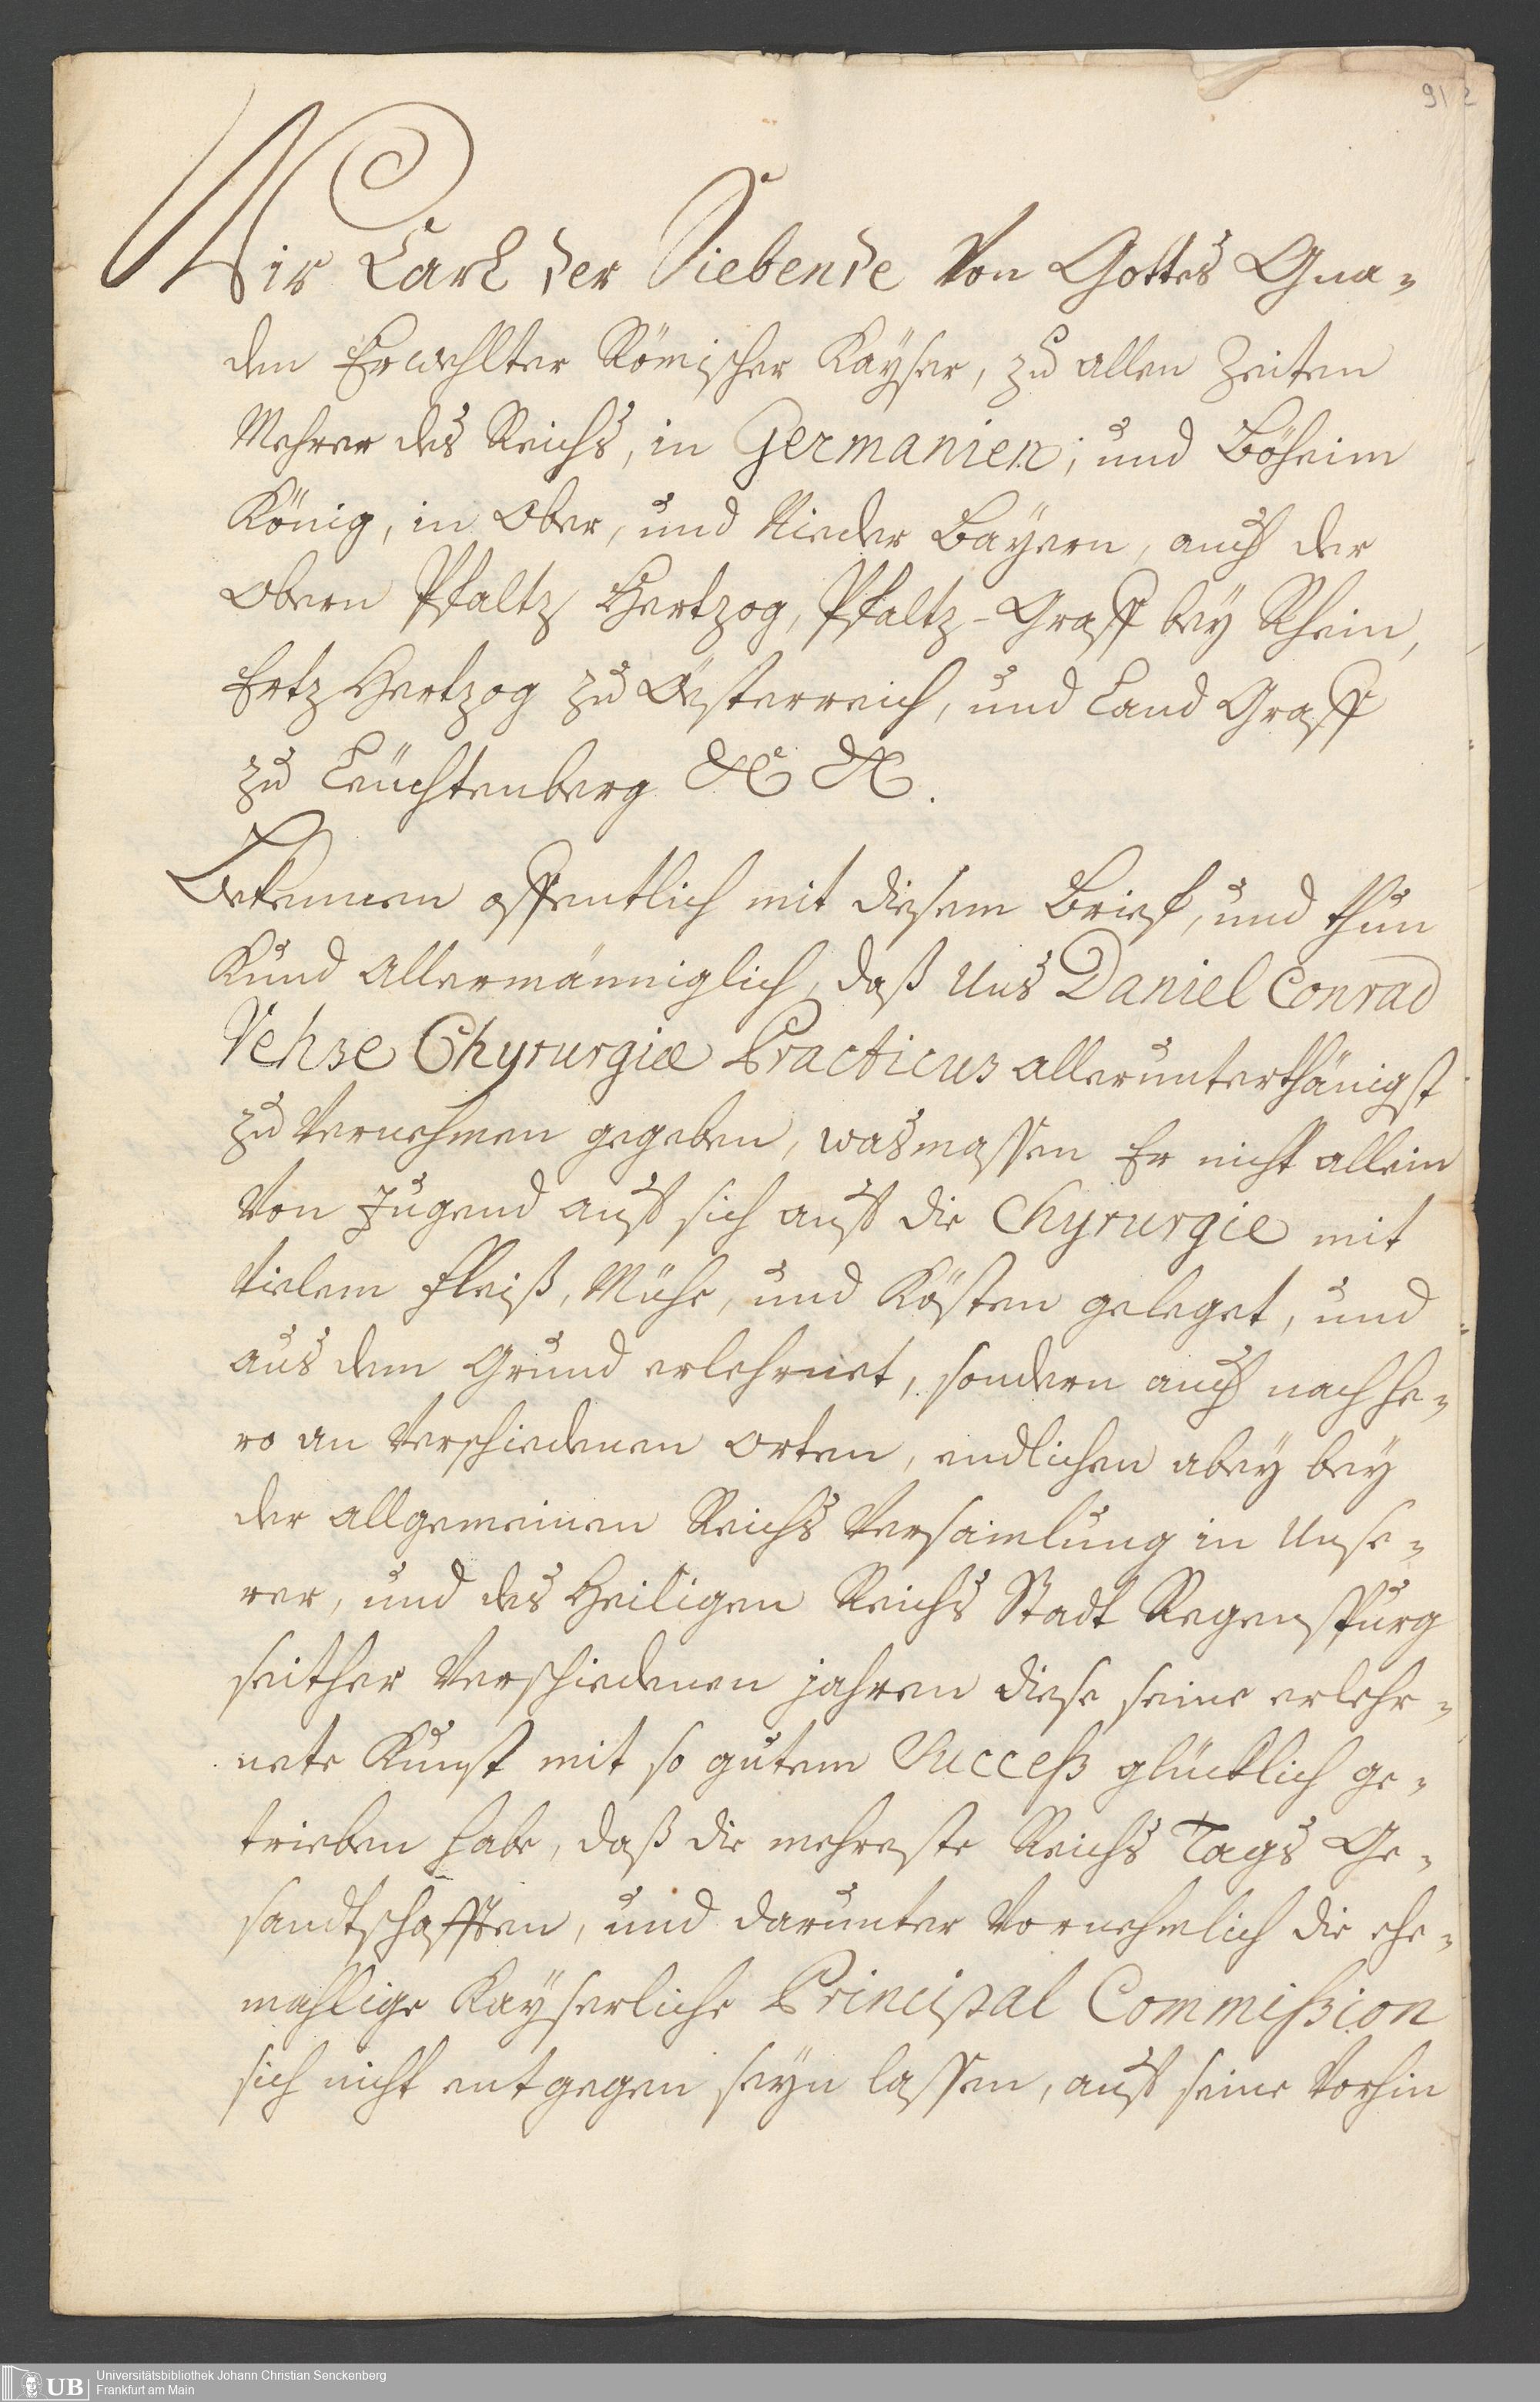 91 2
Wir Carl der Siebende Von Gottes Gna-
den Erwehlter Römischer Kayser, zu allen Zeiten
Mehrer des Reichs, in Germanien, und Böheim
König, in Ober, und Nieder Bayern, auch der
Obern Pfaltz Hertzog, Pfaltz-Graff bey Rhein,
Ertz Hertzog zu Österreich, und Land Graff
zu Leuchtenberg &c &c.
Bekennen offentlich mit diesem Brief, und thun
Kund Allermänniglich, daß Uns Daniel Conrad
Vehse Chyrurgiæ Practicus allerunterthänigst
zu Vernehmen gegeben, wasmassen Er nicht allein
Von Jugend auff sich auff die Chyrurgie mit
Vielem Fleiß, Mühe, und Kösten geleget, und
aus dem Grund erlehrnet, sondern auch nach he-
ro an Verschiedenen Orten, endlichen abey bey
der allgemeinen Reichs Versamlung in Unse-
rer, und des Heiligen Reichs Stadt Regenspurg
seither Verschiedenen jahren diese seine erlehr-
nete Kunst mit so gutem Succeß glücklich ge-
trieben habe, daß die mehreste Reichs Tags Ge-
sandtschafften, und darunter Vornehmlich die ehe-
mahlige Kayserliche Principal Commißion
sich nicht entgegen seyn lassen, auff seine Vorhin
UB Universitätsbibliothek Johann Christian Senckenberg
Frankfurt am Main